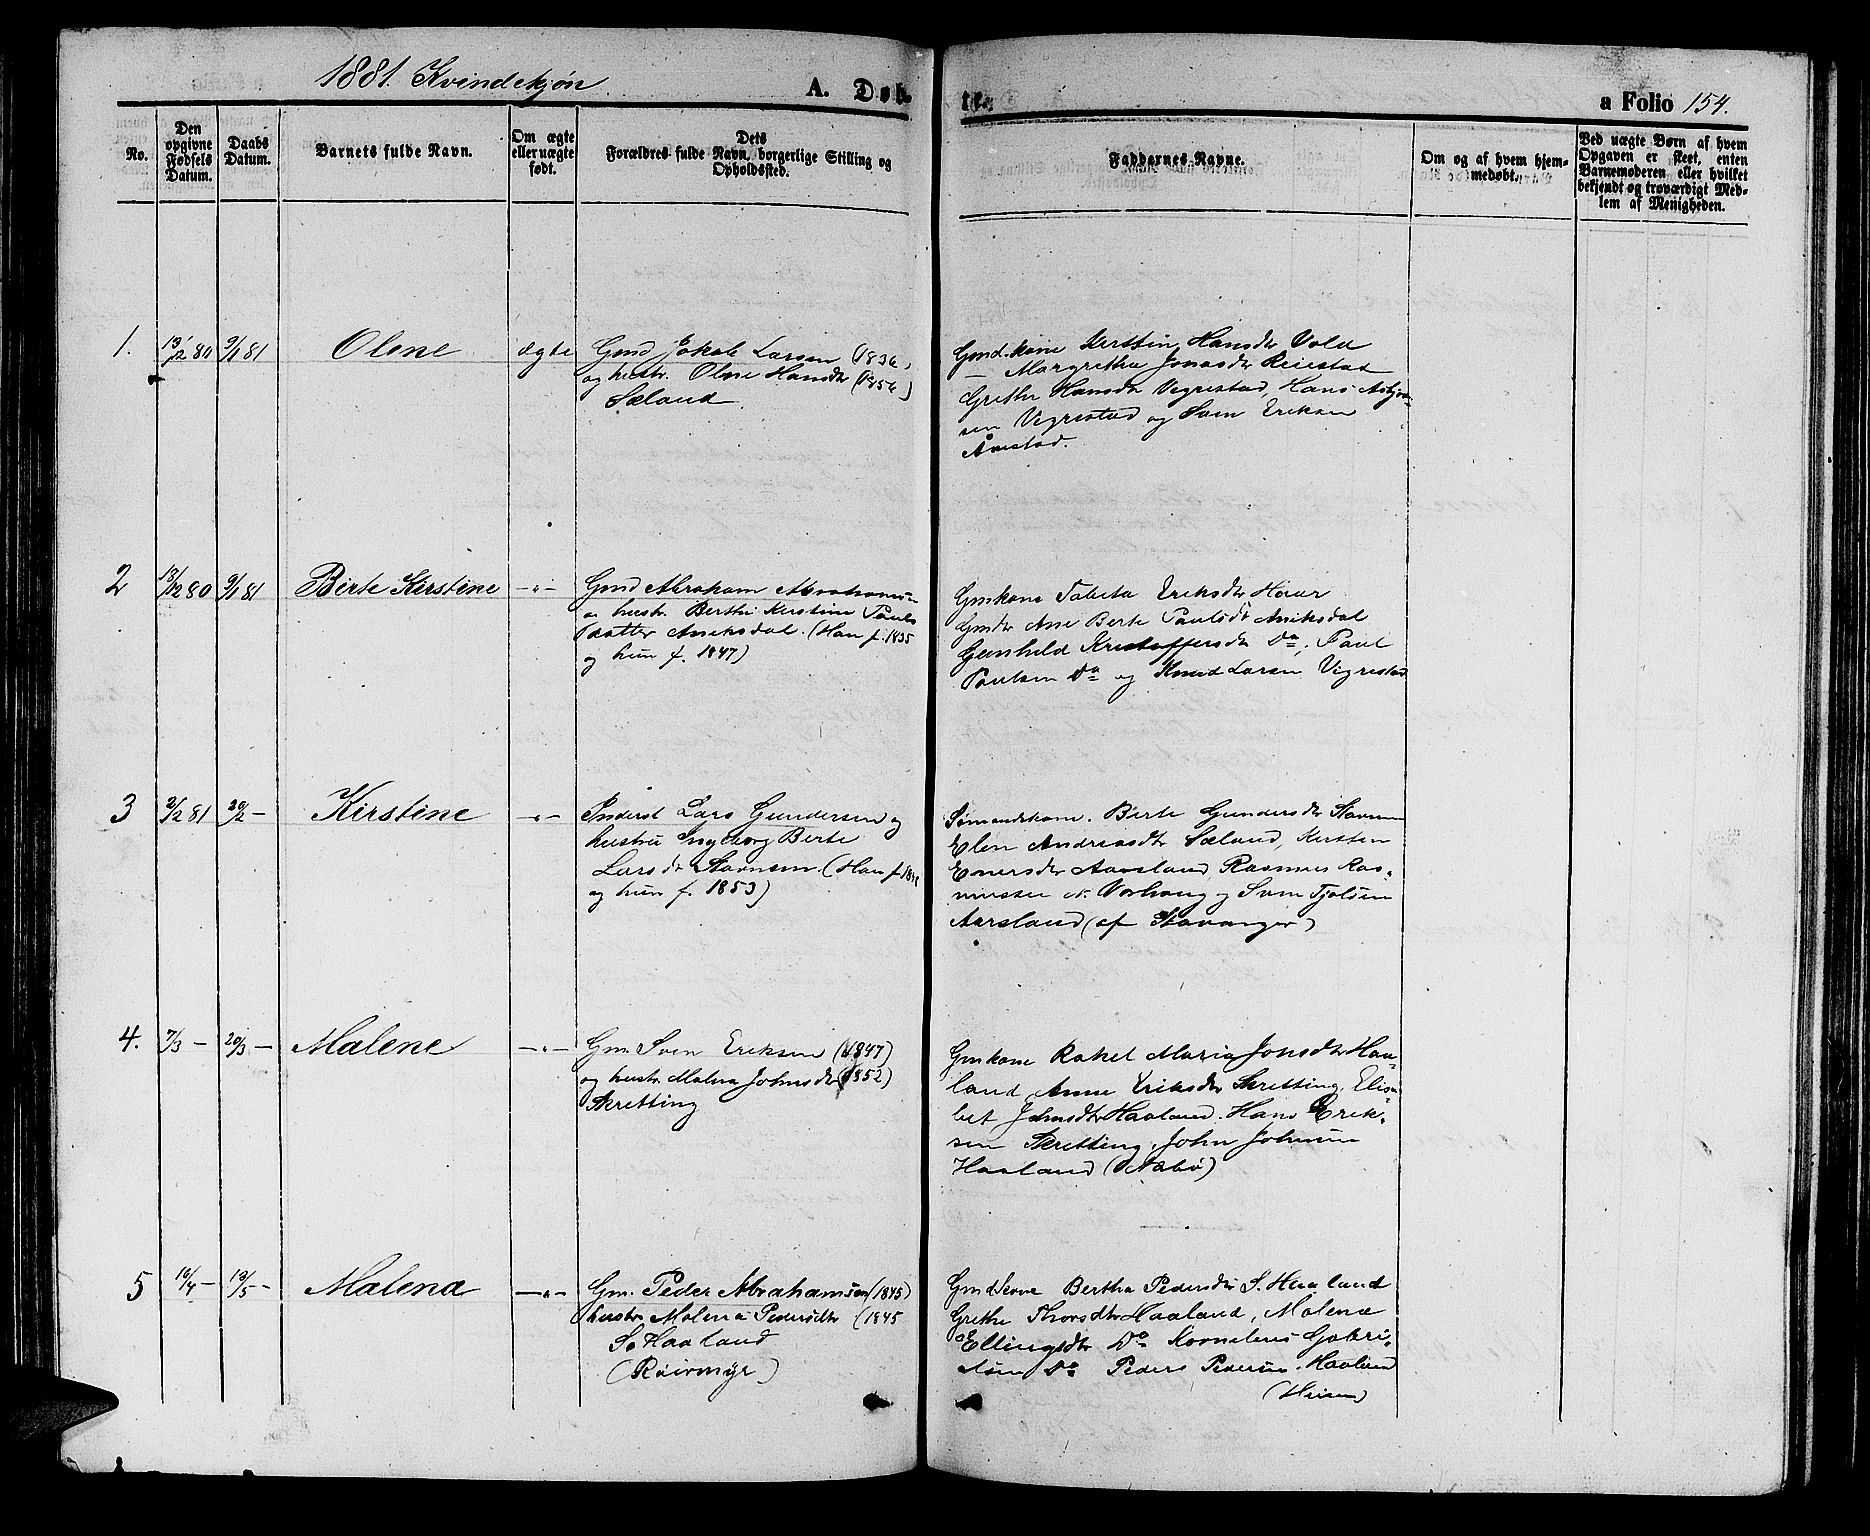 1881. Kvindekjøn.
A. Døb-
te.
a Folio 154.
No.
Den opgivne Fødsels Datum.
Daabs Datum.
Barnets fulde Navn.
Om ægte eller uægte født.
Dets Forældres fulde Navn, borgerlige Stilling og Opholdssted.
Faddernes Navne.
Om og af hvem hjemmedøbt.
Ved uægte Børn af hvem Opgaven er skeet, enten Barnemoderen eller hvilket bekjendt og troværdigt Medlem af Menigheden.
1.
13/12 80
9/1 81
Olene
ægte
Gmd Jakob Larsen (1836,
og hustr. Olene Hansdtr (1856)
Sæland.
Gmd.kone Kerstin Hansdtr Vold
— Margrethe Jonasdtr Reiestad
Grethe Hansdtr Vegrestad, Hans Asbjørn-
sen Vigrestad og Sven Eriksen
Årrestad.
2
18/12 80
9/1 81
Birte Kirstine
—„—
Gmd Abraham Abrahamsen
o hustr. Berthe Kirstine Pauls
Datter Aniksdal. (Han f. 1835
og hun f. 1847)
Gmkone Tabita Eriksdtr Hørar
Gmdtr Ane Berte Paulsdt Aniksdal
Gunhild Kristoffersdtr Do, Paul
Paulsen Do og Knud Larsen Vigrestad
3
2/2 81
20/2 —
Kirstine
—„—
Inderst Lars Gundersen og
hustru Ingeborg Berte
Larsdt Stavnem (Han f.
og hun f. 1853)
Sømandskone. Berte Gundersdtr Stavnem
Elen Andreasdtr Sæland, Kirsten
Enersdtr Aarsland, Rasmus Ras-
mussen N. Varhaug og Sven Tjølsen
Aarsland (af Stavanger)
4.
7/3 —
20/3 —
Malene
—„—
Gm. Sven Eriksen (1847)
og hustr Malena Johnsdtr (1852)
Skretting
Gmkone Rakel Maria Jonsdtr Haa-
land, Anne Eriksdtr Skretting, Elisa-
bet Johnsdtr Haaland. Hans Erik-
sen Skretting, John Johnsen
Haaland (Nabø)
5
16/4 —
13/5 —
Malena
—„—
Gm. Peder Abrahamsen (1845)
hustr Malena Pedersdtr (1845
S. Haaland
(Røirmyr)
Gmdkone Bertha Pedersdtr S. Haaland
Grethe Thorsdtr Haaland, Malena
Ellingsdtr Do Kornelius Gabri-
elsen Do Peder Pedersen. Haaland